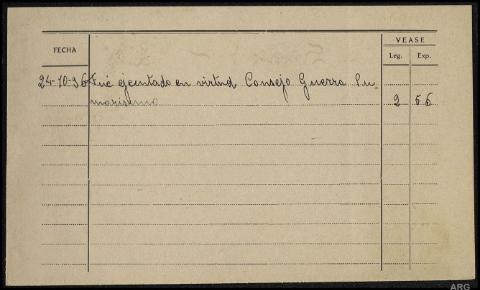 VEASE
FECHA
Leg. Exp.
24-10-36 Fué ejecutado en virtud Consejo Guerra Su-
marísimo 2 56
ARG